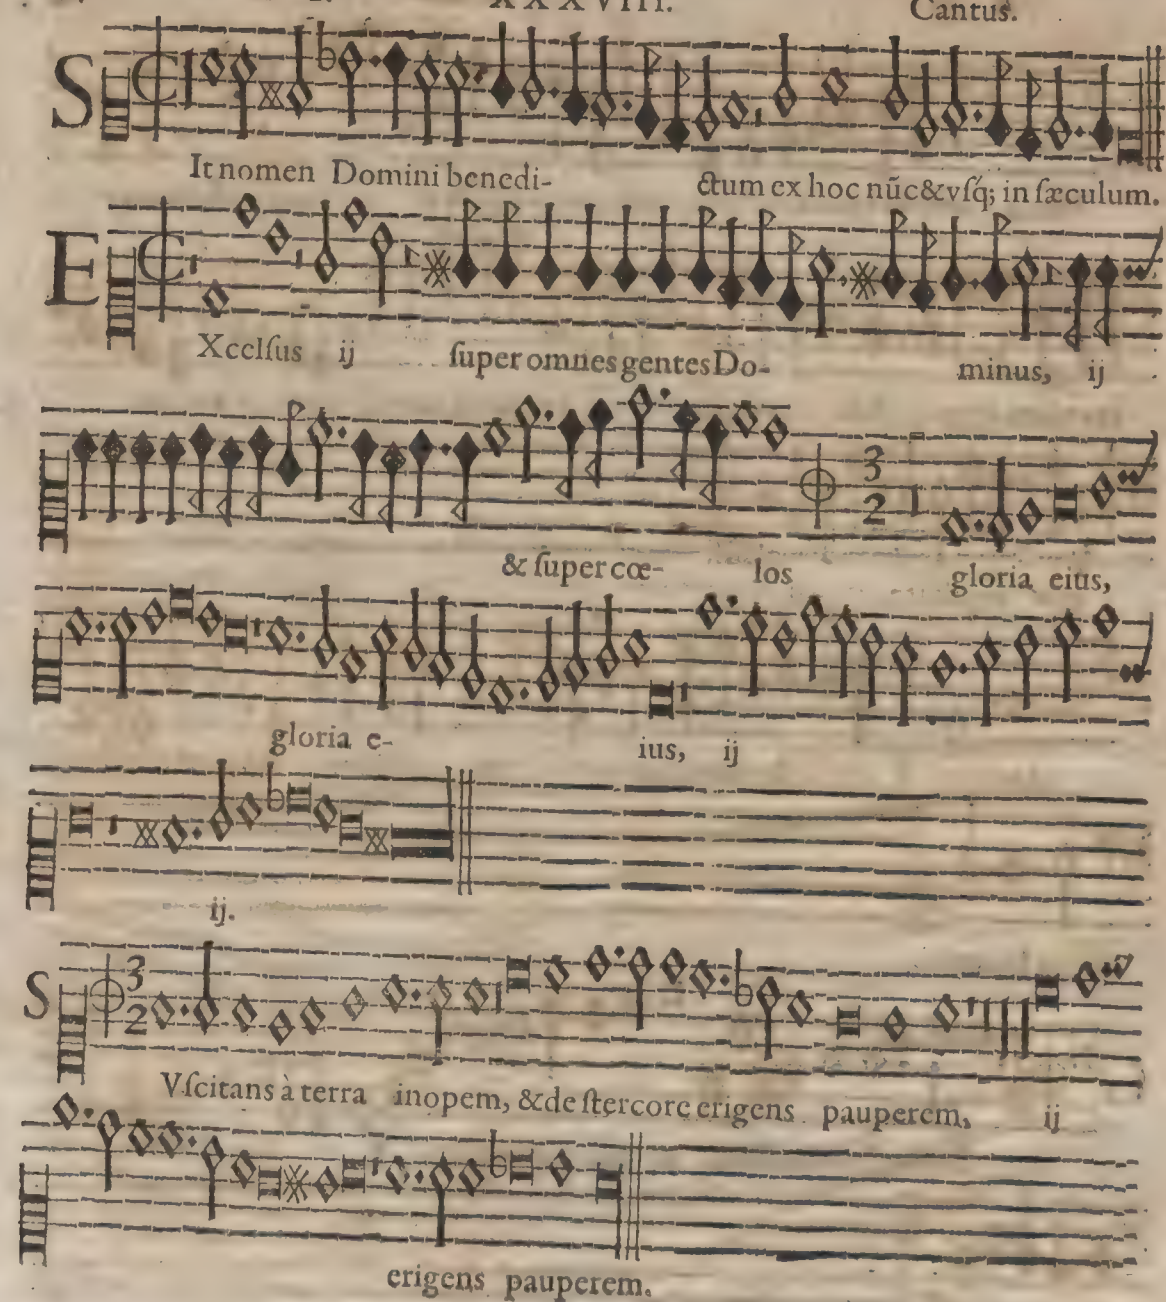 XXXVIII. Cantus.
S
It nomen Domini benedi- ctum ex hoc nũc&vſq́; in ſæculum.
E
Xcelſus ij ſuper omnes gentes Do- minus, ij
3
2
& ſuper cœ- los gloria eius,
gloria e- ius, ij
ij.
S 3
2
Vſcitans à terra inopem, & de ſtercore erigens pauperem, ij
erigens pauperem.